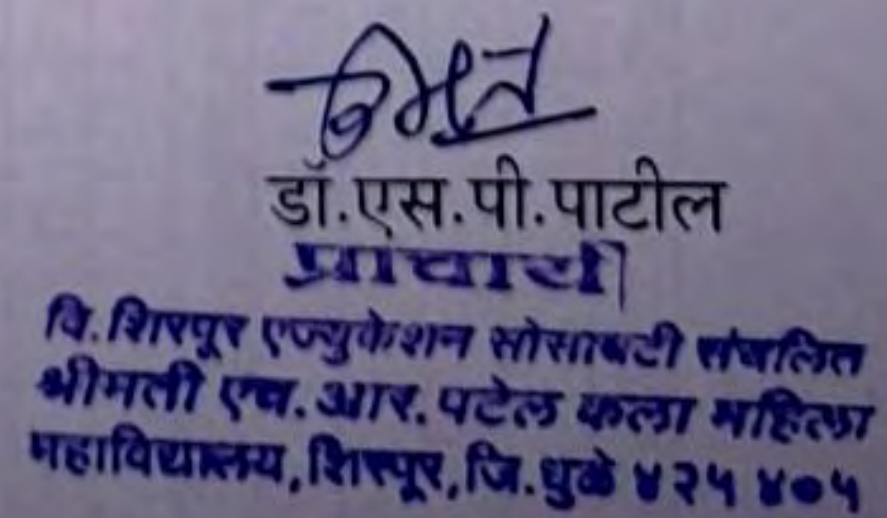 डॉ.एस.पी.पाटील
प्राचार्य
वि.शिरपूर एज्युकेशन सोसायटी संचलित
श्रीमती एच.आर.पटेल कला महिला
महाविद्यालय,शिरपूर,जि.धुळे ४२५ ४०५